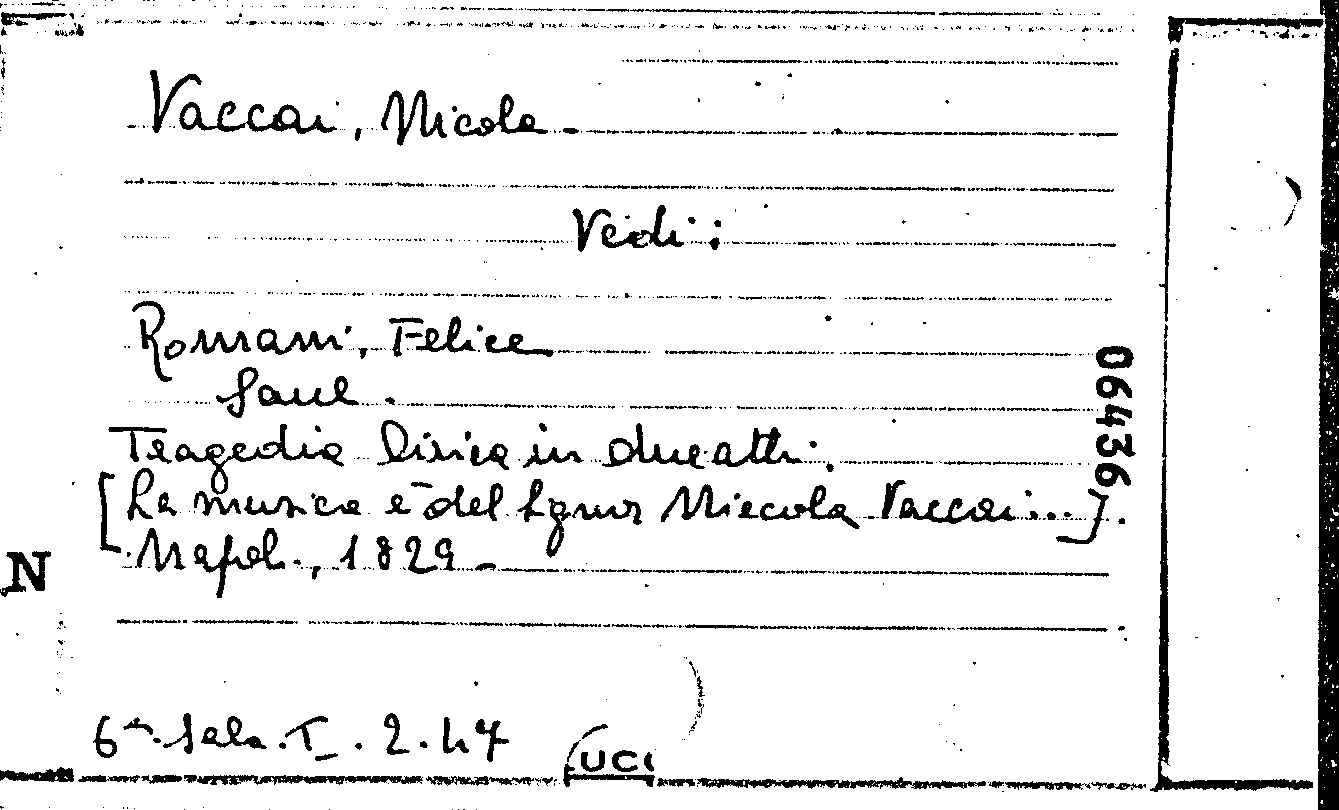 Vaccai, Nicola -
Vedi:
Romani, Felice
Saul.
Tragedia lirica in due atti.
[La musica è del signor Niccola Vaccai...].
Napoli, 1829 -
06436
N
6ª Sala. I. 2. 47
UCI